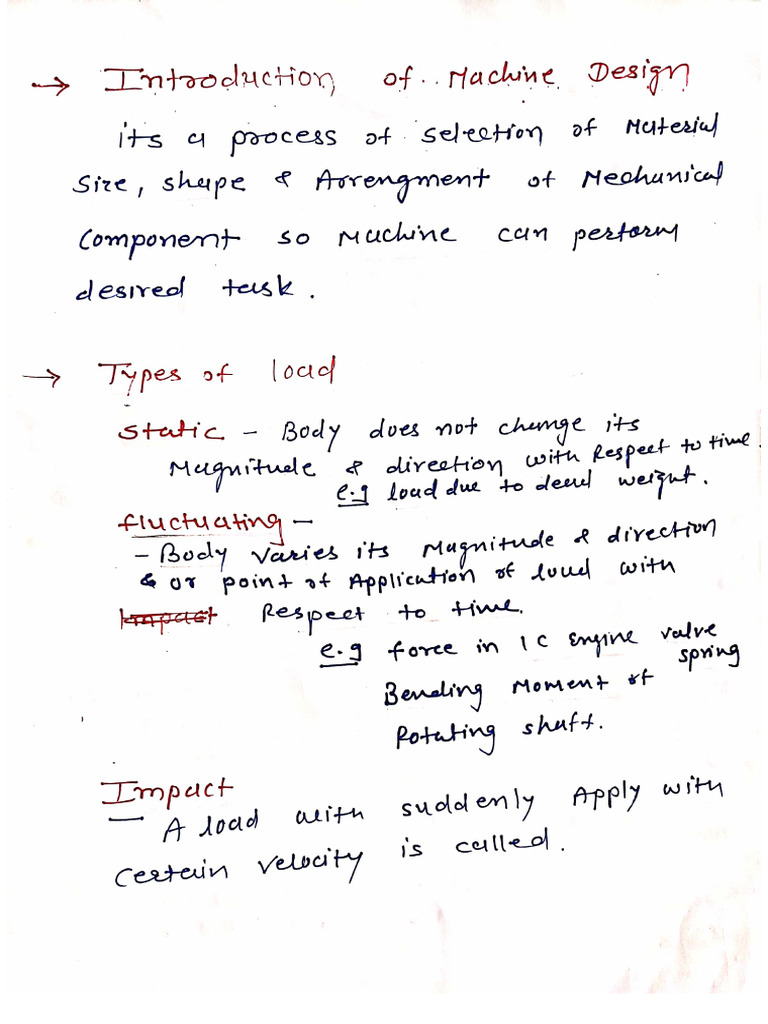 → Introduction of.. Machine Design
its a process of selection of Material
Size, shape & Arrengment of Mechanical
Component so Machine can perform
desired task.
→ Types of load
Static - Body does not change its
Magnitude & direction with Respect to time.
e.g load due to dead weight.
fluctuating -
- Body varies its Magnitude & direction
& or point of Application of load with
Impact Respect to time.
e.g force in I C Engine valve
spring
Bending Moment of
Rotating shaft.
Impact
- A load with suddenly Apply with
Certain velocity is called.